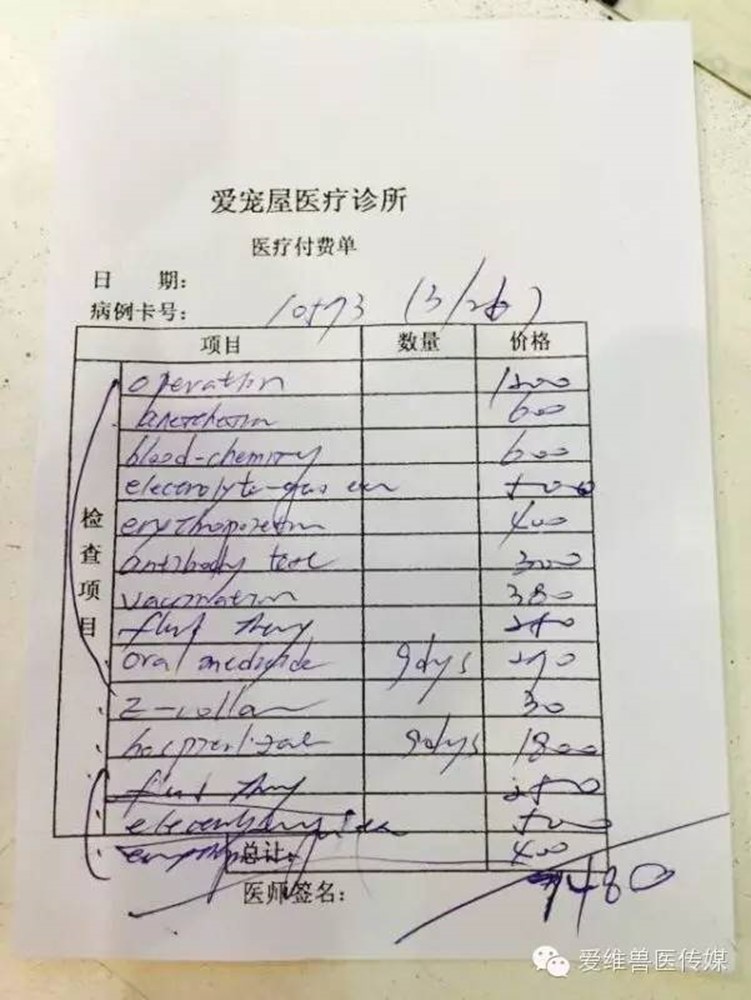 爱宠屋医疗诊所
医疗付费单
日 期:
病例卡号: 10573 (3/26)
项目 数量 价格
检查项目
operation 1200
600
blood-chemistry 600
500
erythropoietin 400
antibody test 300
vaccination 380
fluid thery 250
oral medicide 9dys 290
z-collar 30
hospitalizae 9dys 1800
fluid thery 250
500
总计: 400
7480
医师签名:
爱维兽医传媒